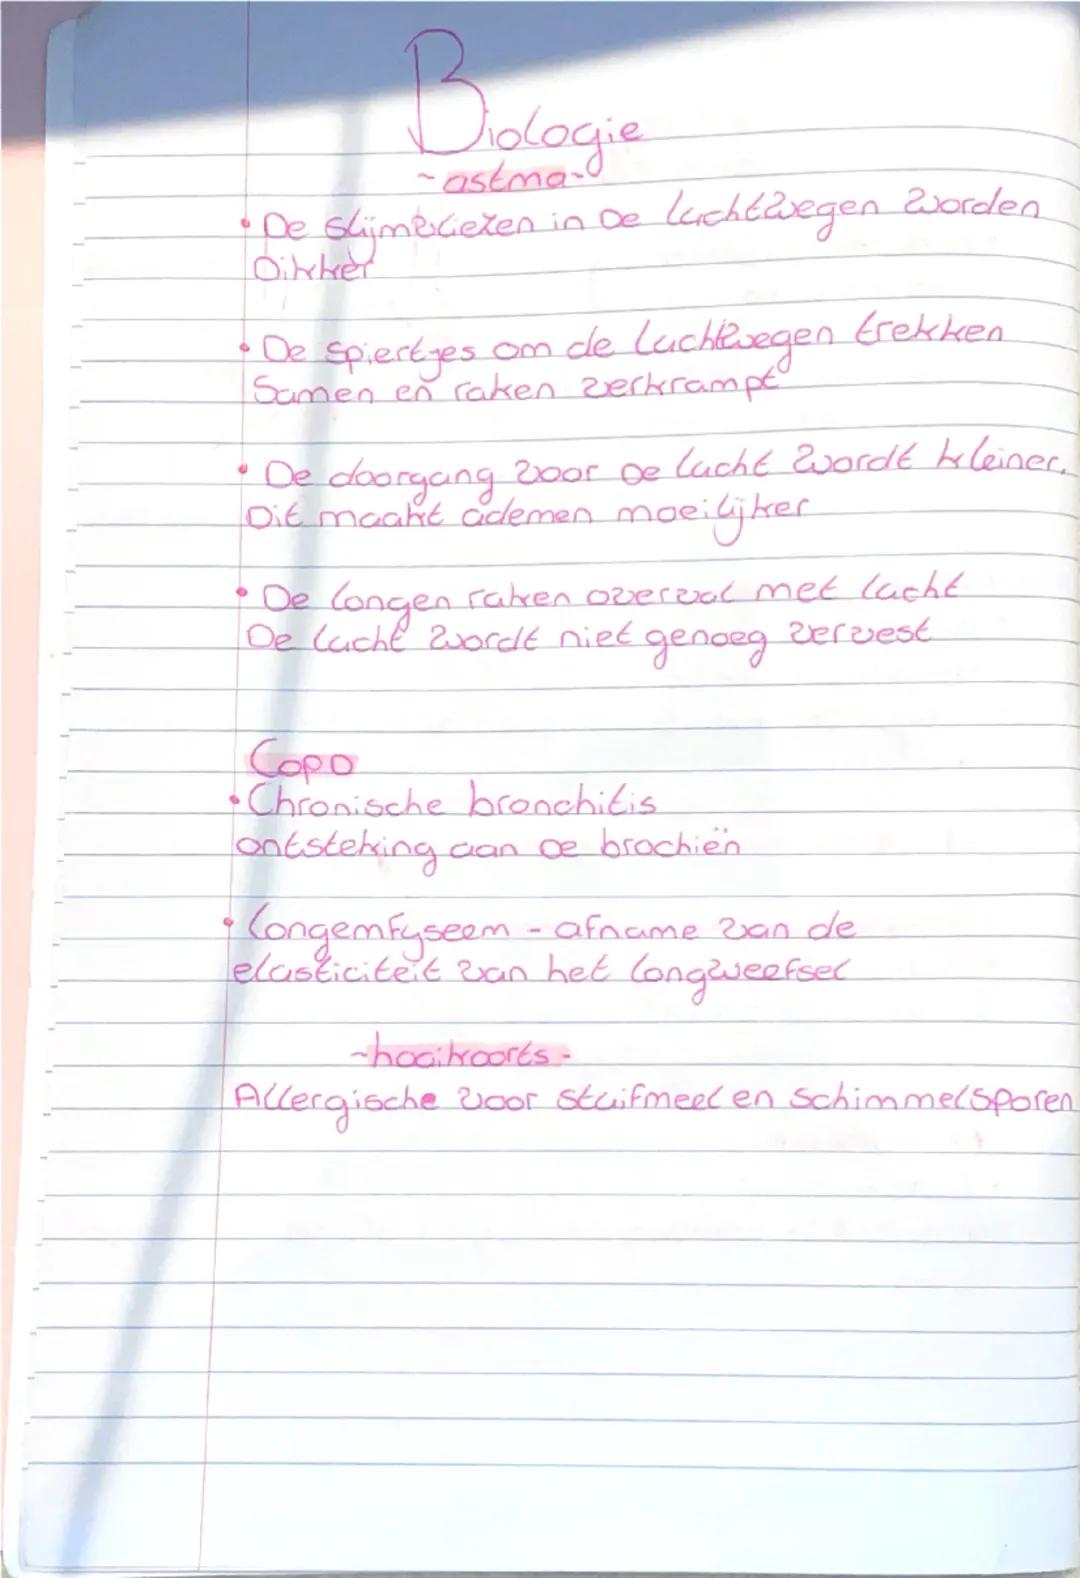 Biologie
-astma-
• De slijmvliezen in De luchtwegen worden
Dikker
• De spiertjes om de luchtwegen trekken
Samen en raken verkrampt
• De doorgang voor De lucht wordt kleiner.
Dit maakt ademen moeilijker
• De longen raken overvol met lucht
De lucht wordt niet genoeg ververst
COPD
• Chronische bronchitis
ontsteking aan De brochiën
• Longemfyseem - afname van de
elasticiteit van het longweefsel
-hooikoorts-
Allergische voor stuifmeel en schimmelsporen